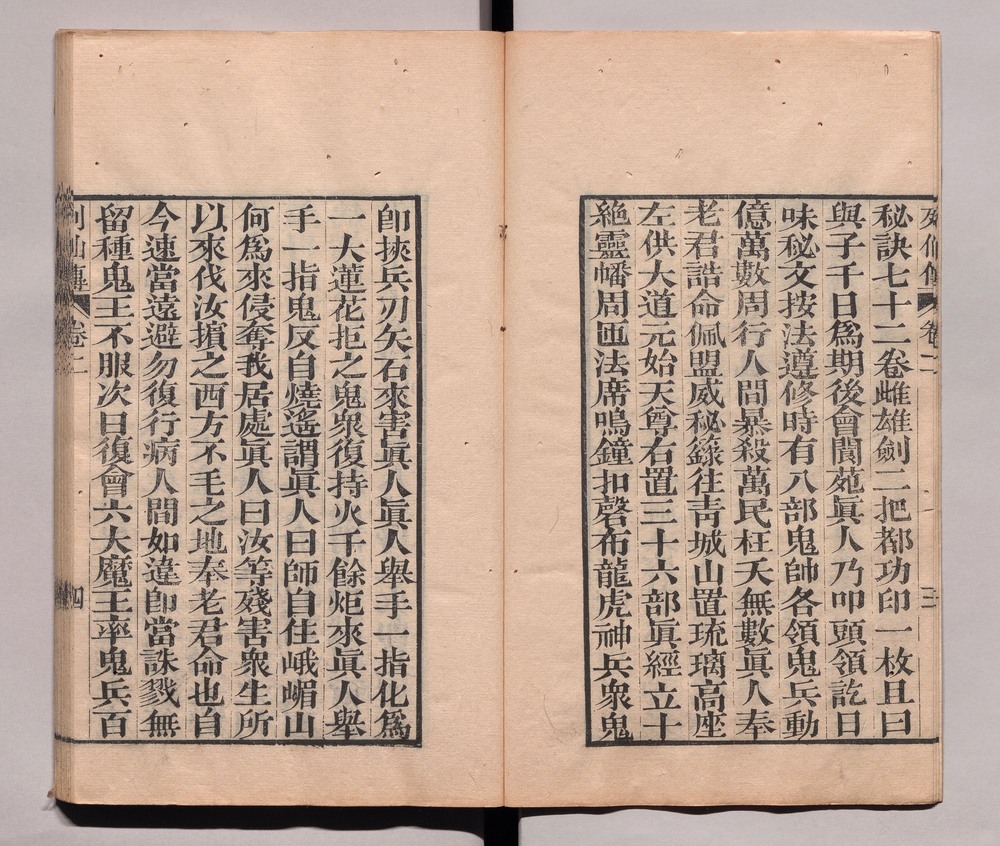 列仙傳 卷二 三
秘訣七十二卷雌雄劍二把都功印一枚且曰
與子千日爲期後會閬苑眞人乃叩頭領訖日
味秘文按法遵修時有八部鬼帥各領鬼兵動
億萬數周行人間暴殺萬民枉夭無數眞人奉
老君誥命佩盟威秘籙往青城山置琉璃高座
左供大道元始天尊右置三十六部眞經立十
絶靈幡周匝法席鳴鐘扣磬布龍虎神兵衆鬼
卽挾兵刃矢石來害眞人眞人舉手一指化爲
一大蓮花拒之鬼衆復持火千餘炬來眞人舉
手一指鬼反自燒遙謂眞人曰師自住峨嵋山
何爲來侵奪我居處眞人曰汝等殘害衆生所
以來伐汝擯之西方不毛之地奉老君命也自
今速當遠避勿復行病人間如違卽當誅戮無
留種鬼王不服次日復會六大魔王率鬼兵百
列仙傳 卷二 四